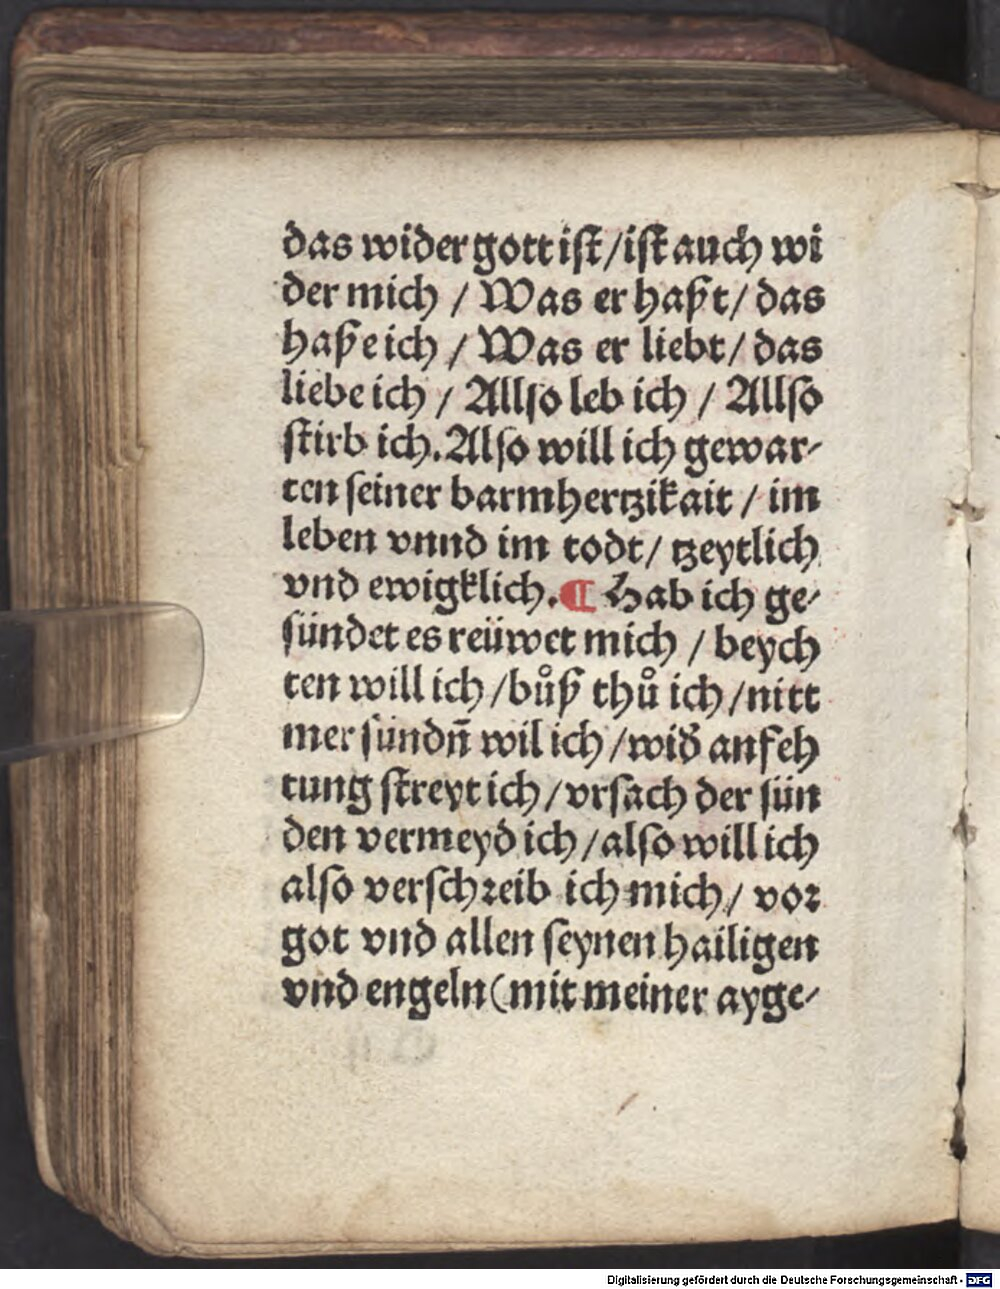 das wider gott ist / ist auch wi
der mich / Was er haßt / das
haße ich / Was er liebt / das
liebe ich / Allso leb ich / Allso
stirb ich. Also will ich gewar⸗
ten seiner barmhertzikait / im
leben vnnd im todt / tzeytlich
vnd ewigklich. ¶ Hab ich ge⸗
sündet es reüwet mich / beych
ten will ich / bůß thů ich / nitt
mer sündn̄ wil ich / wid̕ anfeh
tung streyt ich / vrsach der sün
den vermeyd ich / also will ich
also verschreib ich mich / vor
got vnd allen seynen hailigen
vnd engeln (mit meiner ayge⸗
Digitalisierung gefördert durch die Deutsche Forschungsgemeinschaft - DFG